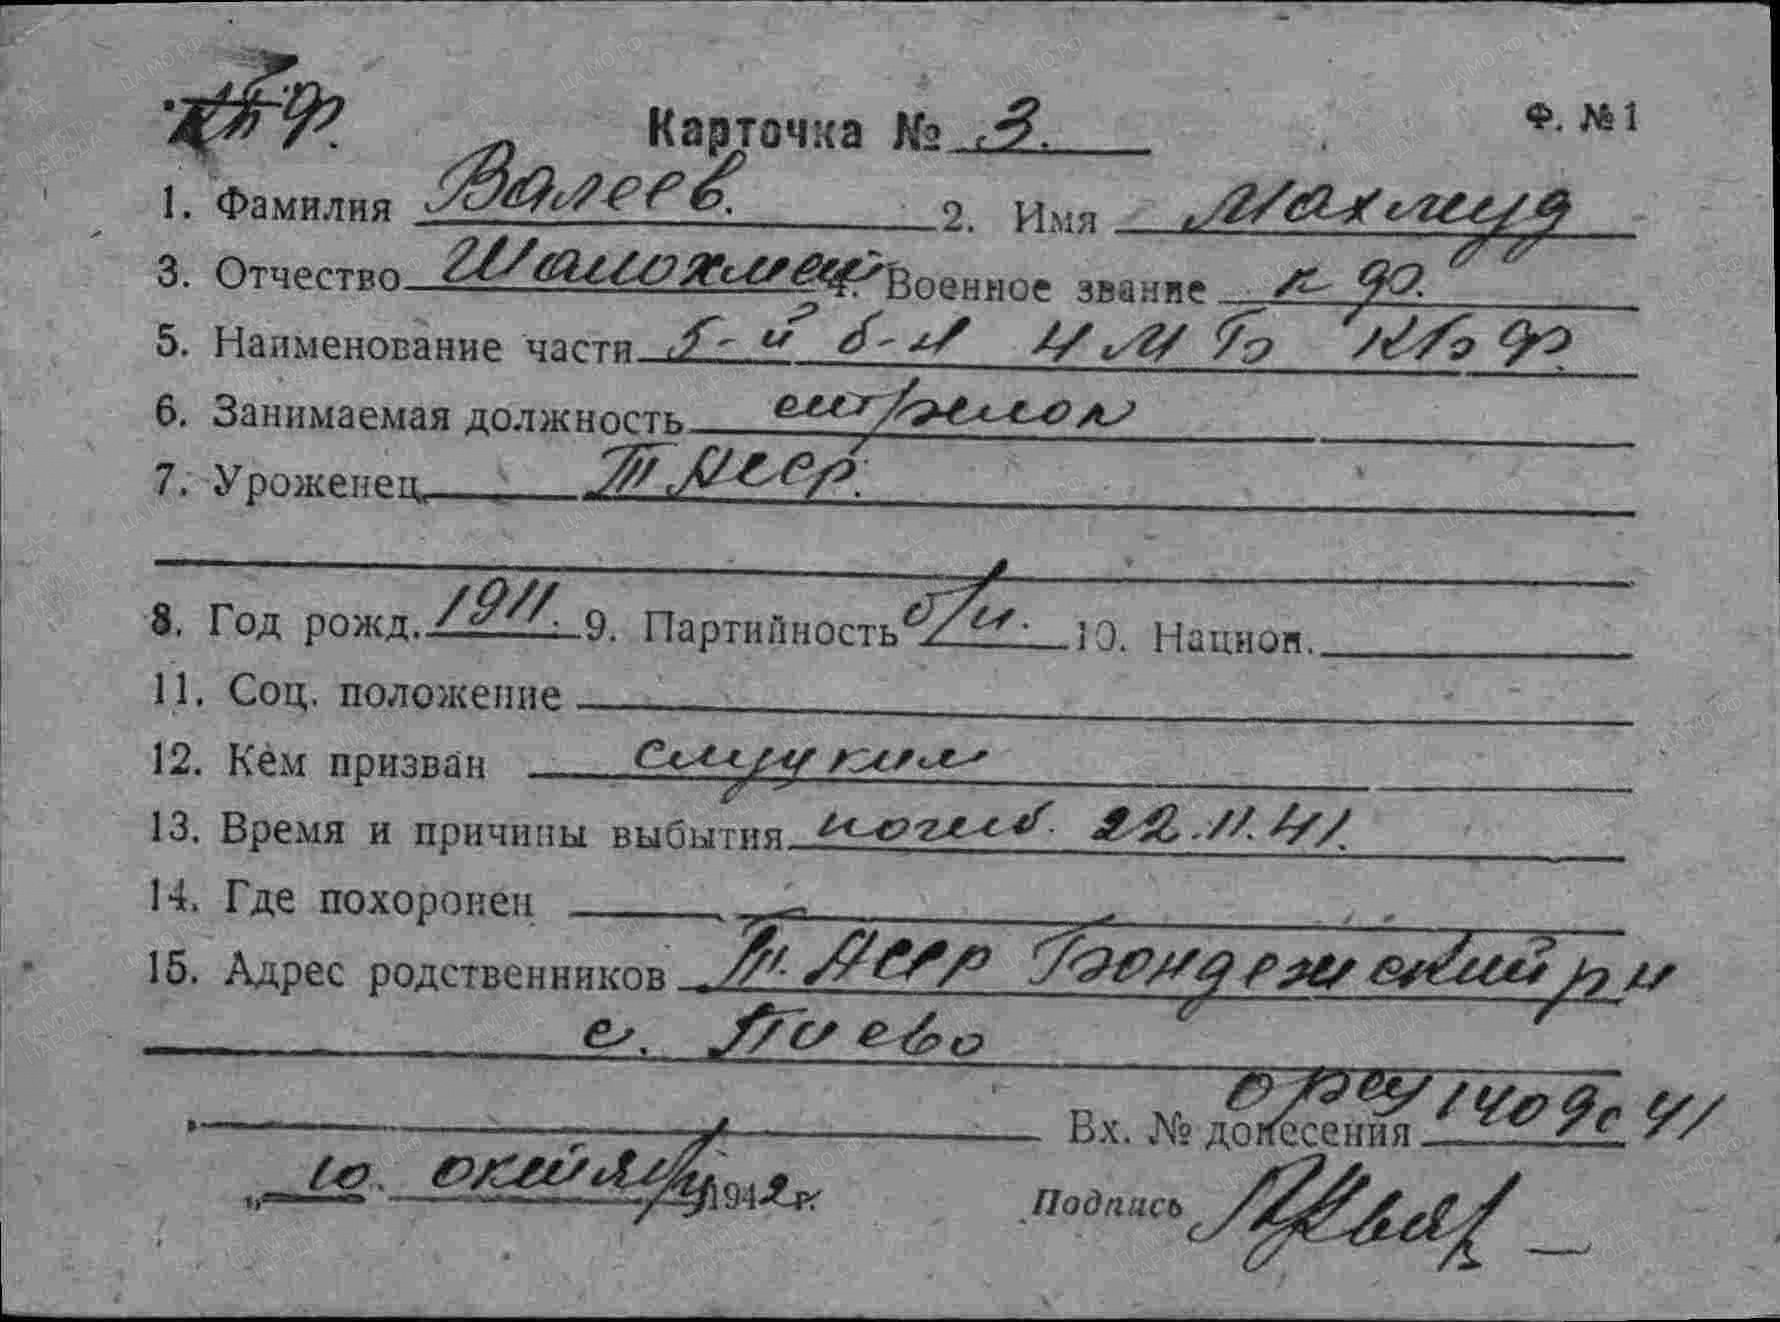 КБФ.
Карточка № 3. Ф. № 1
1. Фамилия Валеев. 2. Имя Махмуд
3. Отчество 4. Военное звание к ф.
5. Наименование части 5-й б-н 4 МБ КБФ.
6. Занимаемая должность стрелок
7. Уроженец ТАССР.
8. Год рожд. 1911. 9. Партийность б/п. 10. Национ.
11. Соц. положение
12. Кем призван Слуцким
13. Время и причины выбытия погиб. 22.11.41.
14. Где похоронен
15. Адрес родственников Т. АССР Бондежский р н
с. Поево
Вх. № донесения 1409с 41
„ 10. октября 1942 г.
Подпись